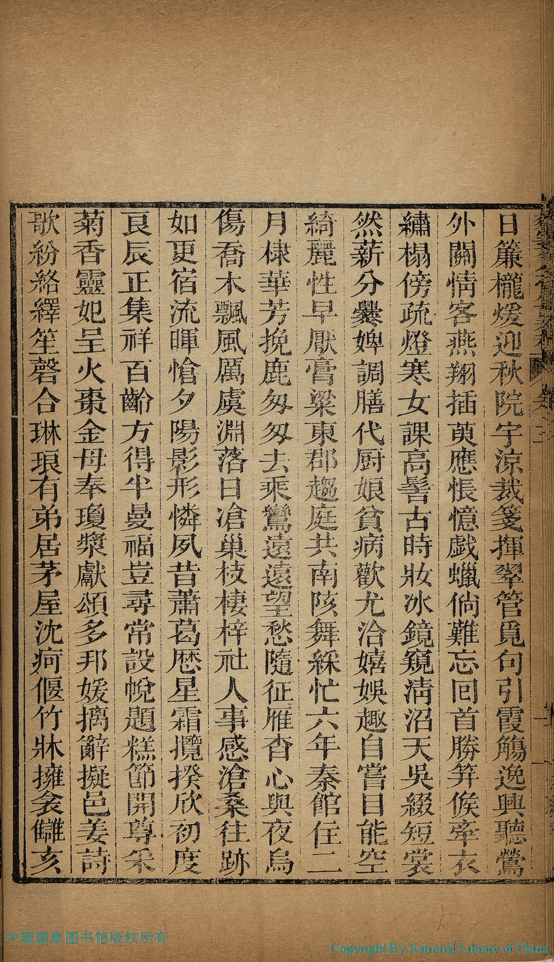 日簾櫳煖迎秋院宇涼裁箋揮翠管覓句引霞觴逸興聽鶯
外關情客燕翔插萸應悵憶戲蠟倘難忘回首勝筓候牽衣
繡榻傍疏燈寒女課高髻古時妝冰鏡窺淸沼天吳綴短裳
然薪分爨婢調膳代厨娘貧病歡尤洽嬉娛趣自嘗目能空
綺麗性早厭膏粱東郡趨庭共南陔舞綵忙六年秦館住二
月棣華芳挽鹿匆匆去乘鸞遠遠望愁隨征雁杳心與夜烏
傷喬木飄風厲虞淵落日滄巢枝棲梓社人事感滄桑往跡
如更宿流暉愴夕陽影形憐夙昔蕭葛歷星霜攬揆欣初度
良辰正集祥百齡方得半曼福豈尋常設帨題糕節開尊采
菊香靈妃呈火棗金母奉瓊漿獻頌多邦媛摛辭擬邑姜詩
歌紛絡繹笙磬合琳琅有弟居茅屋沈疴偃竹牀擁衾讎亥
中国国家图书馆版权所有
Copyright By National Library of China